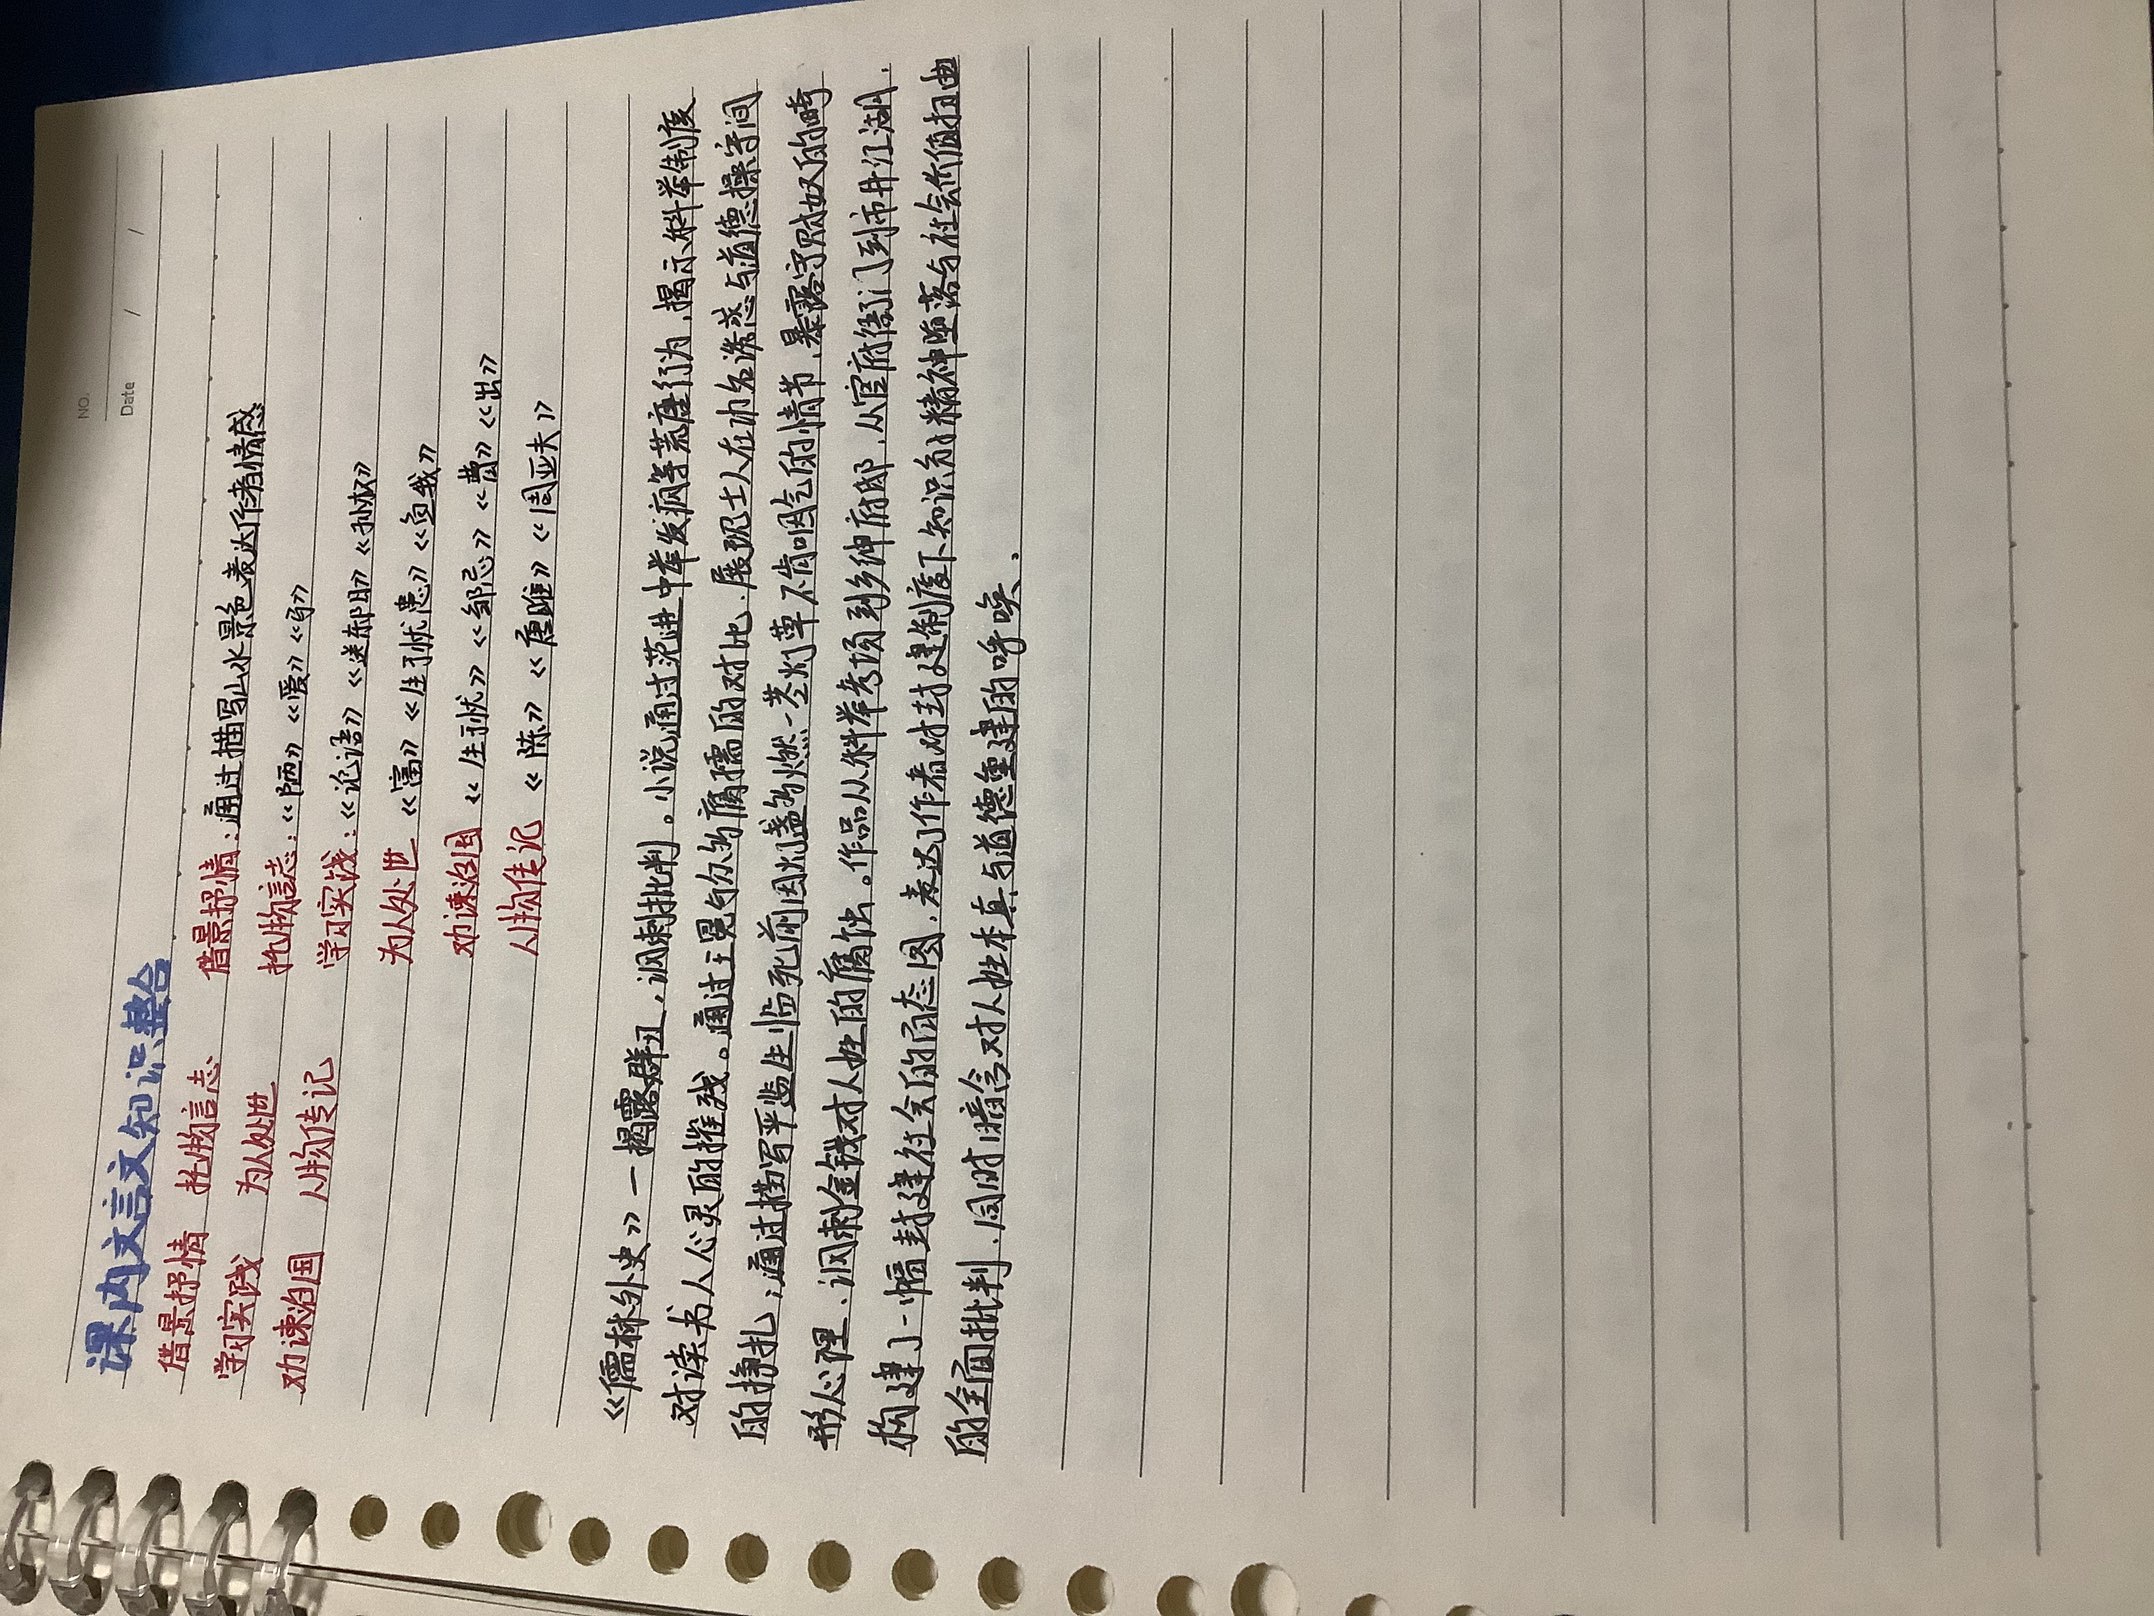 NO.
Date / /
课内文言文知识整合
借景抒情 托物言志
学习实践 为人处世
劝谏治国 人物传记
借景抒情：通过描写山水景色表达作者情感
托物言志：《陋》《爱》《马》
学习实践：《论语》《送郝》《孙权》
为人处世 《富》《生于忧患》《鱼我》
劝谏治国 《生于忧》《邹忌》《曹》《出》
人物传记 《陈》《唐雎》《周亚夫》
《儒林外史》—揭露群丑，讽刺批判。小说通过范进中举发疯等荒唐行为，揭示科举制度
对读书人心灵的摧残。通过王冕与众多腐儒的对比，展现士人在功名诱惑与道德操守间
的挣扎；通过描写严监生临死前因灯盏多燃一茎灯草不肯咽气的情节，暴露守财奴的畸
形心理，讽刺金钱对人性的腐蚀。作品从科举考场到乡绅府邸，从官府衙门到市井江湖，
构建了一幅封建社会的百态图，表达了作者对封建制度下知识分子精神堕落与社会价值扭曲
的全面批判，同时暗含对人性本真与道德重建的呼唤。